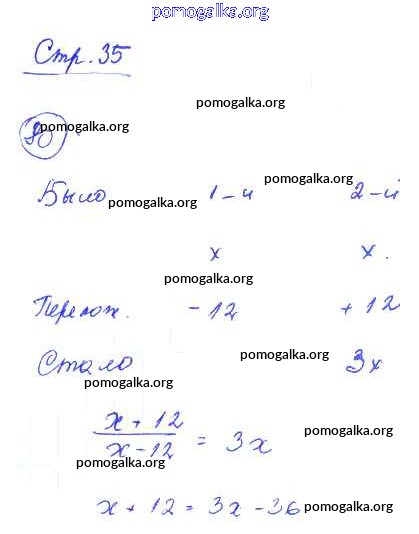 pomogalka.org
Стр. 35
pomogalka.org
80 pomogalka.org
pomogalka.org
Было pomogalka.org 1-й 2-й
x x.
pomogalka.org
Перелож. -12 +12
pomogalka.org
Стало 3x
pomogalka.org
x + 12 / x - 12 = 3x pomogalka.org
pomogalka.org
x + 12 = 3x - 36 pomogalka.org